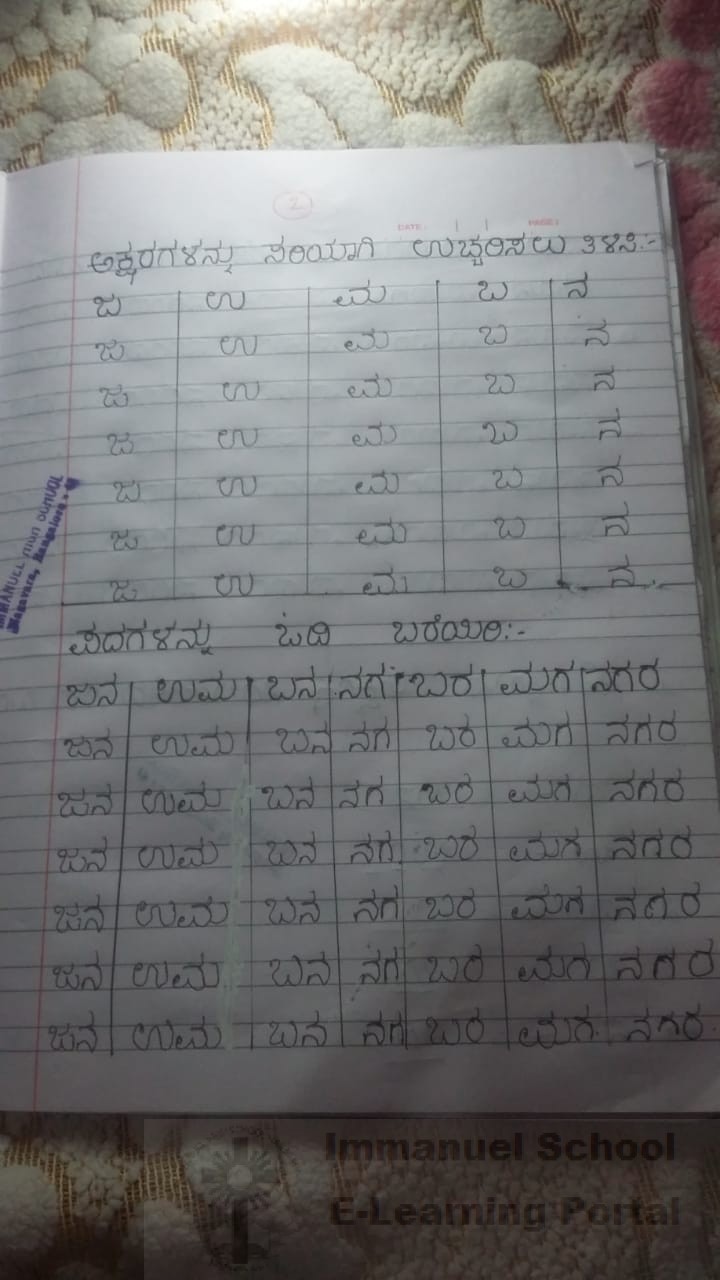 2
DATE: PAGE:
ಅಕ್ಷರಗಳನ್ನು ಸರಿಯಾಗಿ ಉಚ್ಚರಿಸಲು ತಿಳಿಸಿ:-
ಜ ಉ ಮ ಬ ನ
ಜ ಉ ಮ ಬ ನ
ಜ ಉ ಮ ಬ ನ
ಜ ಉ ಮ ಬ ನ
ಜ ಉ ಮ ಬ ನ
ಜ ಉ ಮ ಬ ನ
ಜ ಉ ಮ ಬ ನ
ಪದಗಳನ್ನು ಓದಿ ಬರೆಯಿರಿ:-
ಜನ ಉಮ ಬನ ನಗ ಬರ ಮಗ ನಗರ
ಜನ ಉಮ ಬನ ನಗ ಬರ ಮಗ ನಗರ
ಜನ ಉಮ ಬನ ನಗ ಬರ ಮಗ ನಗರ
ಜನ ಉಮ ಬನ ನಗ ಬರ ಮಗ ನಗರ
ಜನ ಉಮ ಬನ ನಗ ಬರ ಮಗ ನಗರ
ಜನ ಉಮ ಬನ ನಗ ಬರ ಮಗ ನಗರ
ಜನ ಉಮ ಬನ ನಗ ಬರ ಮಗ ನಗರ
Immanuel School
E-Learning Portal